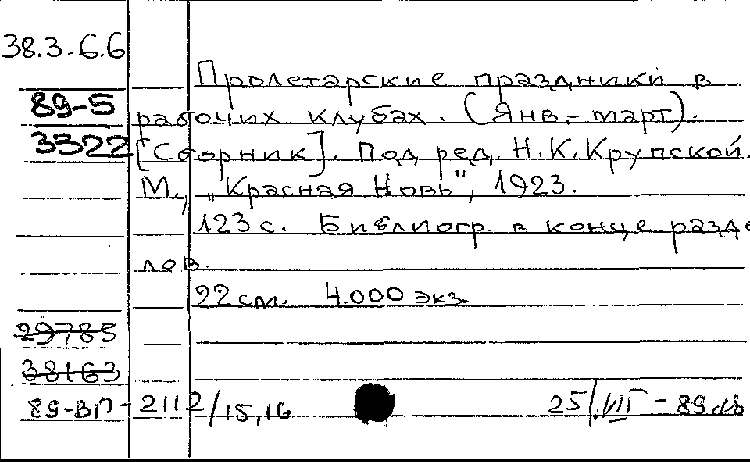 38.3.6.6
Пролетарские праздники в
89-5
рабочих клубах. (Янв.-март).
3322
[Сборник]. Под ред. Н.К.Крупской.
М., "Красная Новь", 1923.
123 с. Библиогр. в конце разде
лов.
22 см. 4.000 экз.
29785
38163
89-ВП-2112/15,16
25/VII-89